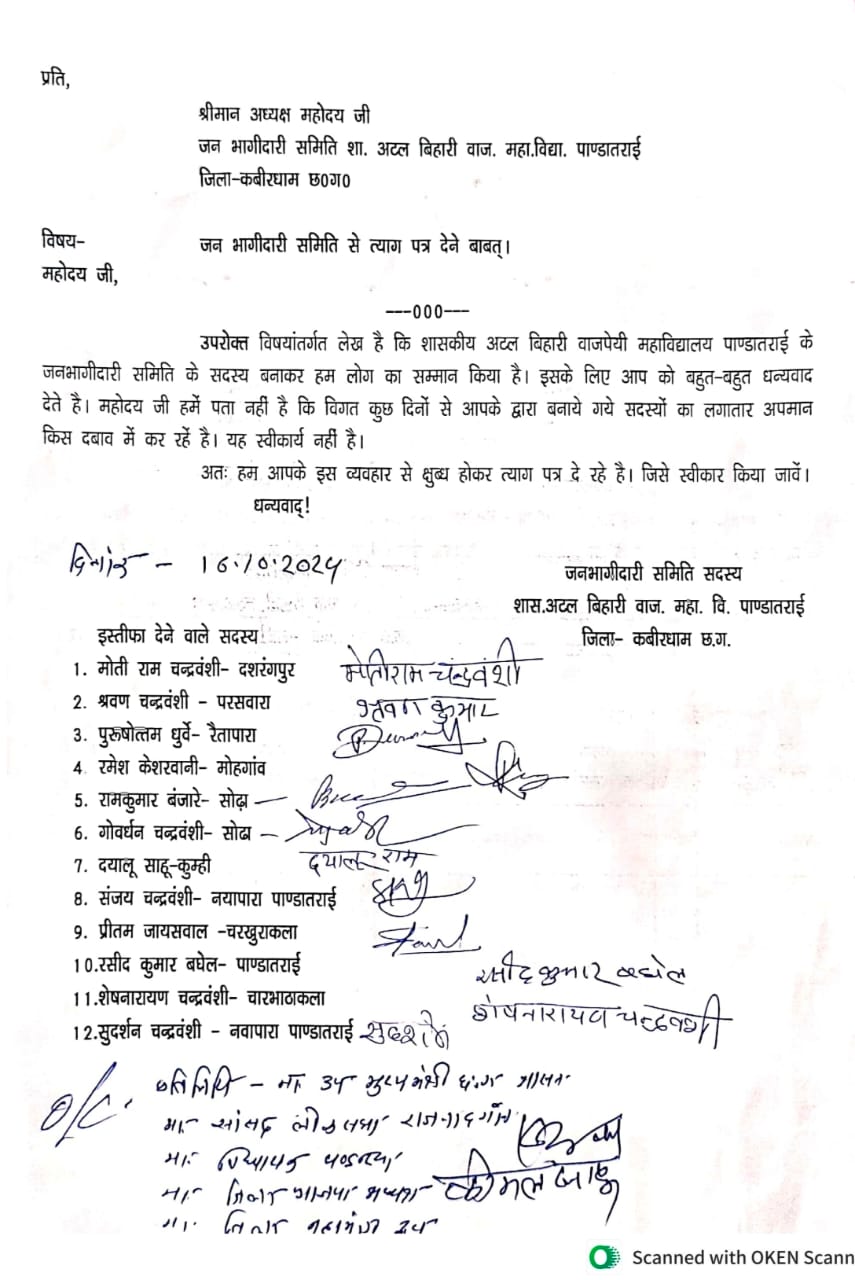 प्रति,
श्रीमान अध्यक्ष महोदय जी
जन भागीदारी समिति शा. अटल बिहारी वाज. महा.विद्या. पाण्डातराई
जिला-कबीरधाम छ0ग0
विषय- जन भागीदारी समिति से त्याग पत्र देने बाबत्।
महोदय जी,
---000---
उपरोक्त विषयांतर्गत लेख है कि शासकीय अटल बिहारी वाजपेयी महाविद्यालय पाण्डातराई के
जनभागीदारी समिति के सदस्य बनाकर हम लोग का सम्मान किया है। इसके लिए आप को बहुत-बहुत धन्यवाद
देते है। महोदय जी हमें पता नहीं है कि विगत कुछ दिनों से आपके द्वारा बनाये गये सदस्यों का लगातार अपमान
किस दबाव में कर रहें है। यह स्वीकार्य नहीं है।
अतः हम आपके इस व्यवहार से क्षुब्ध होकर त्याग पत्र दे रहे है। जिसे स्वीकार किया जावें।
धन्यवाद्!
दिनांक - 16.10.2024
जनभागीदारी समिति सदस्य
शास.अटल बिहारी वाज. महा. वि. पाण्डातराई
जिला- कबीरधाम छ.ग.
इस्तीफा देने वाले सदस्य
1. मोती राम चन्द्रवंशी- दशरंगपुर मोतीराम चंद्रवंशी
2. श्रवण चन्द्रवंशी - परसवारा श्रवण कुमार
3. पुरूषोत्तम धुर्वे- रैतापारा
4. रमेश केशरवानी- मोहगांव
5. रामकुमार बंजारे- सोढ़ा
6. गोवर्धन चन्द्रवंशी- सोढा
7. दयालू साहू-कुम्ही दयालू राम
8. संजय चन्द्रवंशी- नयापारा पाण्डातराई
9. प्रीतम जायसवाल -चरखुराकला
10.रसीद कुमार बघेल- पाण्डातराई रसीद कुमार बघेल
11.शेषनारायण चन्द्रवंशी- चारभाठाकला शेषनारायण चन्द्रवंशी
12.सुदर्शन चन्द्रवंशी - नवापारा पाण्डातराई सुदर्शन
O/C. प्रतिलिपि - मा. उप मुख्यमंत्री छ.ग. शासन
मा. सांसद लोकसभा राजनांदगांव
मा. विधायक पण्डरिया
मा. जिला भाजपा अध्यक्ष
मा. जिला महामंत्री
Scanned with OKEN Scann